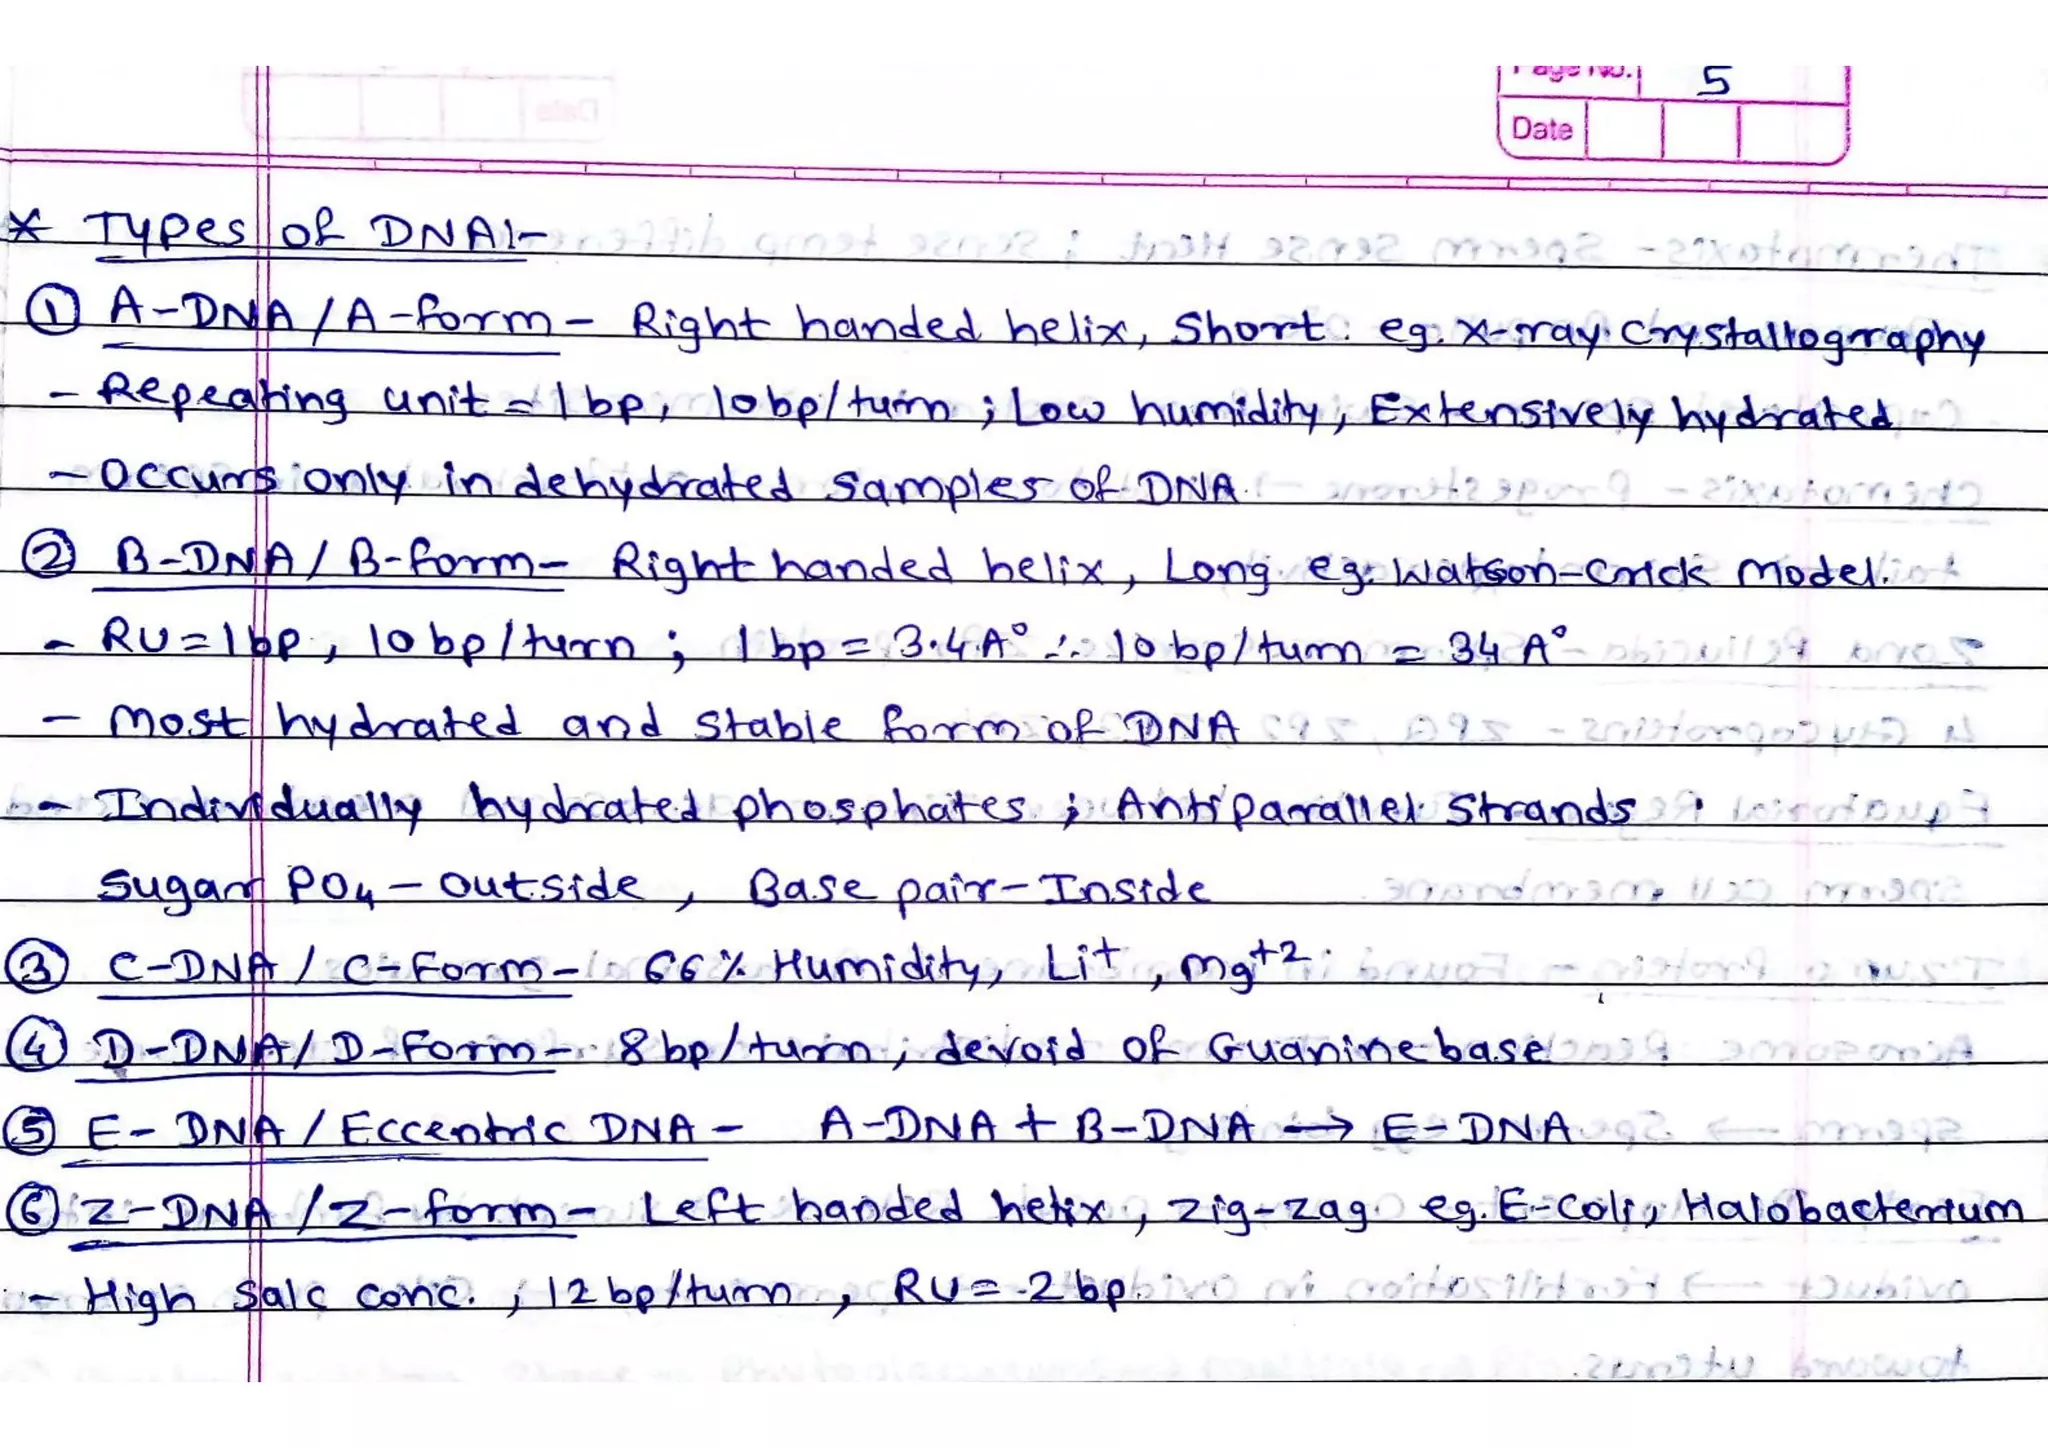 Page No. 5
Date
* Types of DNA:-
① A-DNA/A-form - Right handed helix, Short. eg. X-ray Crystallography
- Repeating unit = 1bp, 10bp/turn ; Low humidity, Extensively hydrated
- Occurs only in dehydrated samples of DNA
② B-DNA/B-form - Right handed helix, Long eg. Watson-Crick Model.
- RU=1bp, 10bp/turn ; 1bp = 3.4A° ∴ 10bp/turn = 34A°
- Most hydrated and stable form of DNA
- Individually hydrated phosphates ; Antiparallel strands
Sugar PO₄ - outside, Base pair - Inside
③ C-DNA/C-Form - 66% Humidity, Li+, mg+2
④ D-DNA/D-Form - 8bp/turn, devoid of Guanine base
⑤ E-DNA/Eccentric DNA - A-DNA + B-DNA → E-DNA
⑥ Z-DNA/Z-form - Left handed helix, zig-zag eg. E-coli, Halobacterium
- High Salt conc. ; 12bp/turn, RU = 2bp.